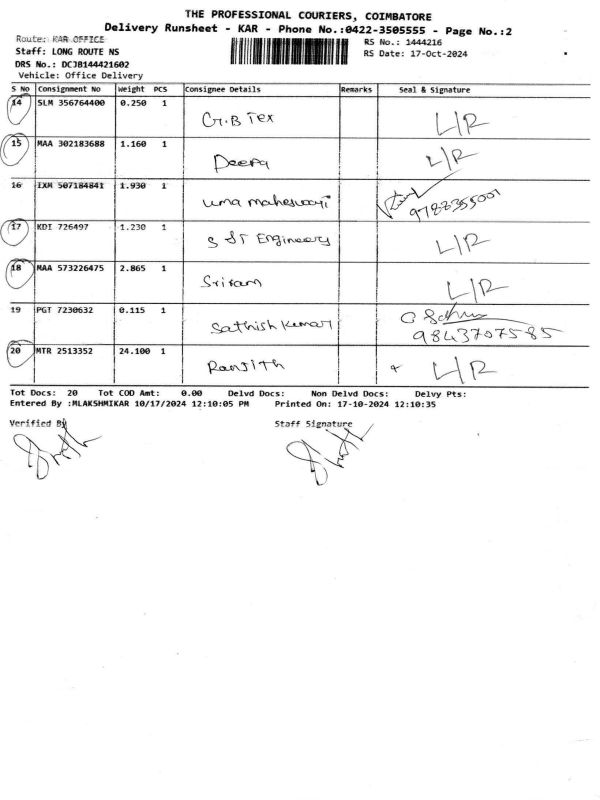 THE PROFESSIONAL COURIERS, COIMBATORE
Delivery Runsheet - KAR - Phone No.:0422-3505555 - Page No.:2
Route: KAR OFFICE
RS No.: 1444216
Staff: LONG ROUTE NS
RS Date: 17-Oct-2024
DRS No.: DCJB144421602
Vehicle: Office Delivery
S No Consignment No Weight PCS Consignee Details Remarks Seal & Signature
14 SLM 356764400 0.250 1 G.B Tex L/R
15 MAA 302183688 1.160 1 Deepa L/R
16 IXM 507184841 1.930 1 uma maheswari 9788355001
17 KDI 726497 1.230 1 S ST Engineers L/R
18 MAA 573226475 2.865 1 Sriram L/R
19 PGT 7230632 0.115 1 Sathish kumar 9843707585
20 MTR 2513352 24.100 1 Ranjith L/R
Tot Docs: 20 Tot COD Amt: 0.00 Delvd Docs: Non Delvd Docs: Delvy Pts:
Entered By :MLAKSHMIKAR 10/17/2024 12:10:05 PM Printed On: 17-10-2024 12:10:35
Verified By Staff Signature